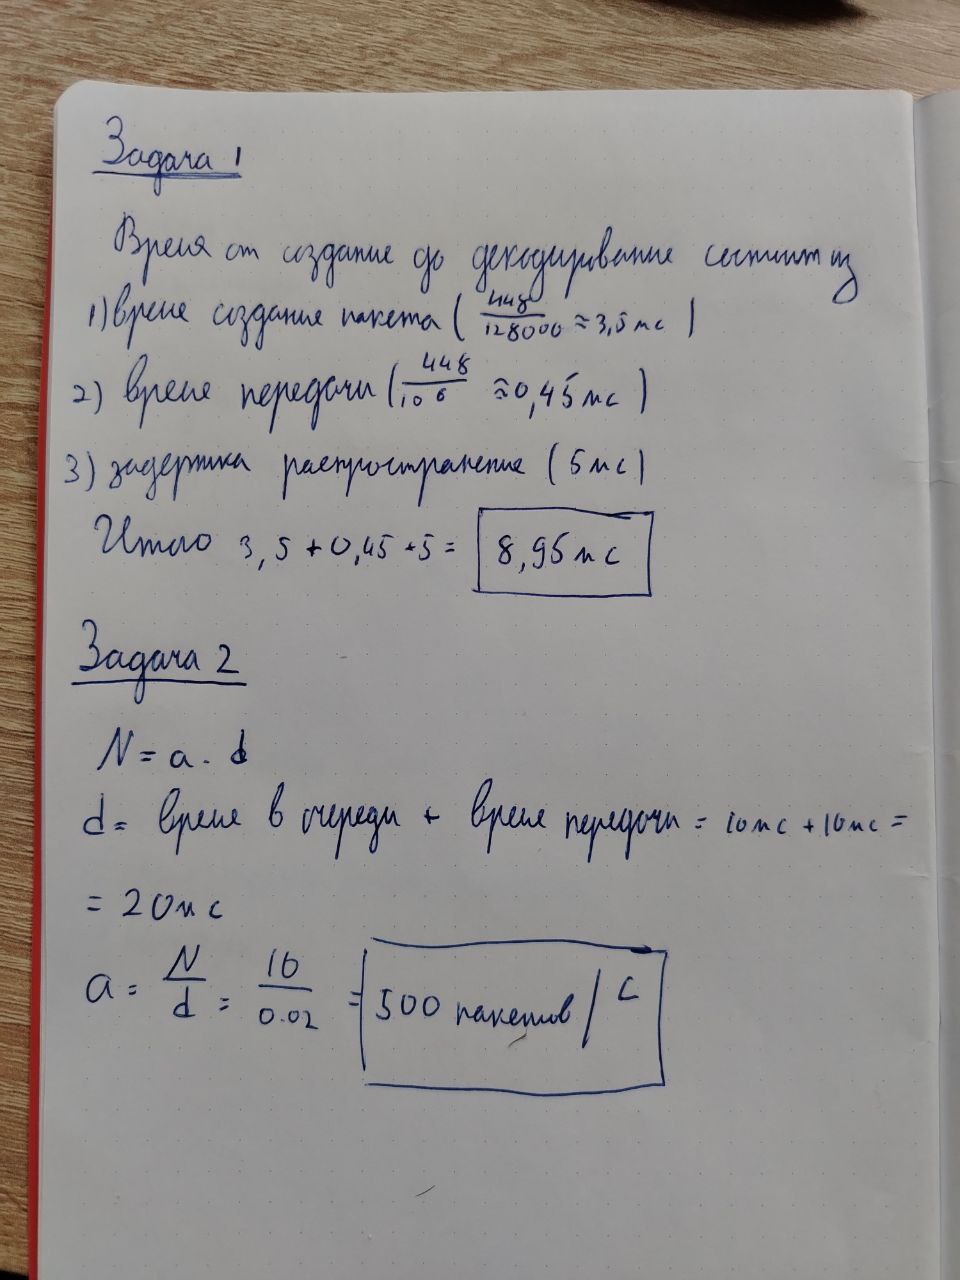 Задача 1
Время от создание до декодирование состоит из
1) време создание пакета ( 448/128000 ≈ 3,5 мс )
2) време передачи ( 448/10^6 ≈ 0,45 мс )
3) задержка распространение ( 5 мс )
Итого 3,5 + 0,45 + 5 = 8,95 мс
Задача 2
N = a · d
d = време в очереди + време передачи = 10 мс + 10 мс =
= 20 мс
a = N/d = 10/0.02 = 500 пакетов / с